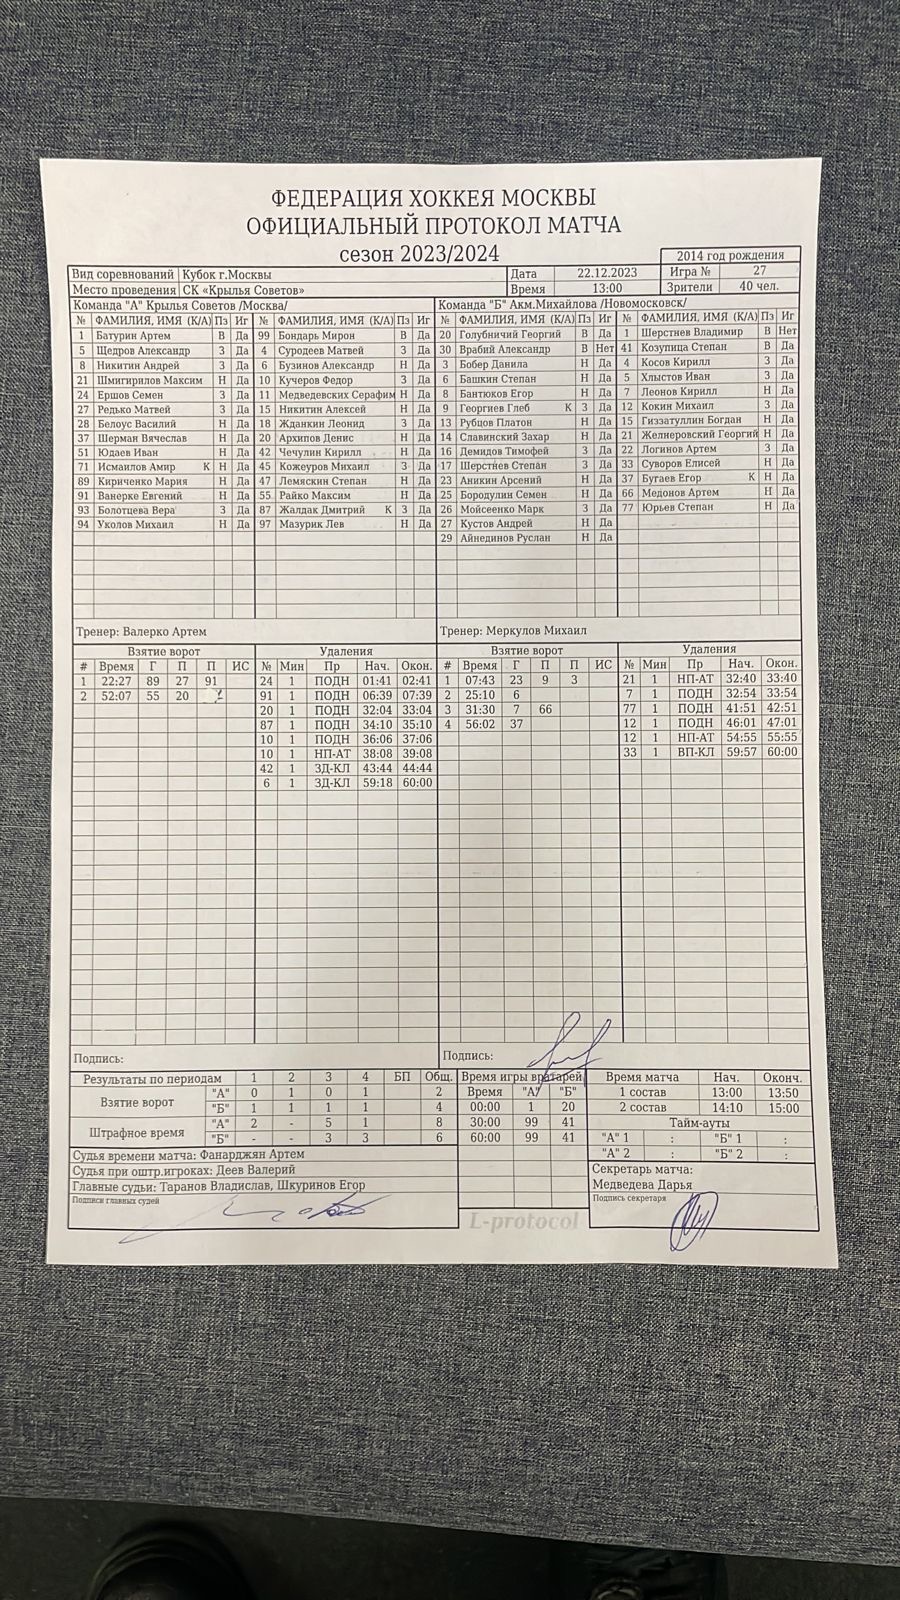 ФЕДЕРАЦИЯ ХОККЕЯ МОСКВЫ
ОФИЦИАЛЬНЫЙ ПРОТОКОЛ МАТЧА
сезон 2023/2024
2014 год рождения
Вид соревнований Кубок г.Москвы Дата 22.12.2023 Игра № 27
Место проведения СК «Крылья Советов» Время 13:00 Зрители 40 чел.
Команда "А" Крылья Советов /Москва/ Команда "Б" Акм.Михайлова /Новомосковск/
№ ФАМИЛИЯ, ИМЯ (К/А) Пз Иг № ФАМИЛИЯ, ИМЯ (К/А) Пз Иг № ФАМИЛИЯ, ИМЯ (К/А) Пз Иг № ФАМИЛИЯ, ИМЯ (К/А) Пз Иг
1 Батурин Артем В Да 99 Бондарь Мирон В Да 20 Голубничий Георгий В Да 1 Шерстнев Владимир В Нет
5 Щедров Александр З Да 4 Суродеев Матвей З Да 30 Врабий Александр В Нет 41 Козупица Степан В Да
8 Никитин Андрей З Да 6 Бузинов Александр Н Да 3 Бобер Данила Н Да 4 Косов Кирилл З Да
21 Шмигирилов Максим Н Да 10 Кучеров Федор З Да 6 Башкин Степан Н Да 5 Хлыстов Иван З Да
24 Ершов Семен З Да 11 Медведевских Серафим Н Да 8 Бантюков Егор Н Да 7 Леонов Кирилл Н Да
27 Редько Матвей З Да 15 Никитин Алексей Н Да 9 Георгиев Глеб К З Да 12 Кокин Михаил З Да
28 Белоус Василий Н Да 18 Жданкин Леонид З Да 13 Рубцов Платон Н Да 15 Гиззатуллин Богдан Н Да
37 Шерман Вячеслав Н Да 20 Архипов Денис Н Да 14 Славинский Захар Н Да 21 Желнеровский Георгий Н Да
51 Юдаев Иван Н Да 42 Чечулин Кирилл Н Да 16 Демидов Тимофей З Да 22 Логинов Артем З Да
71 Исмаилов Амир К Н Да 45 Кожеуров Михаил З Да 17 Шерстнев Степан З Да 33 Суворов Елисей Н Да
89 Кириченко Мария Н Да 47 Лемяскин Степан Н Да 23 Аникин Арсений Н Да 37 Бугаев Егор К Н Да
91 Ванерке Евгений Н Да 55 Райко Максим Н Да 25 Бородулин Семен Н Да 66 Медонов Артем Н Да
93 Болотцева Вера З Да 87 Жалдак Дмитрий К З Да 26 Мойсеенко Марк З Да 77 Юрьев Степан Н Да
94 Уколов Михаил Н Да 97 Мазурик Лев Н Да 27 Кустов Андрей Н Да
29 Айнединов Руслан Н Да
Тренер: Валерко Артем Тренер: Меркулов Михаил
Взятие ворот Удаления Взятие ворот Удаления
# Время Г П П ИС № Мин Пр Нач. Окон. # Время Г П П ИС № Мин Пр Нач. Окон.
1 22:27 89 27 91 24 1 ПОДН 01:41 02:41 1 07:43 23 9 3 21 1 НП-АТ 32:40 33:40
2 52:07 55 20 91 1 ПОДН 06:39 07:39 2 25:10 6 7 1 ПОДН 32:54 33:54
20 1 ПОДН 32:04 33:04 3 31:30 7 66 77 1 ПОДН 41:51 42:51
87 1 ПОДН 34:10 35:10 4 56:02 37 12 1 ПОДН 46:01 47:01
10 1 ПОДН 36:06 37:06 12 1 НП-АТ 54:55 55:55
10 1 НП-АТ 38:08 39:08 33 1 ВП-КЛ 59:57 60:00
42 1 ЗД-КЛ 43:44 44:44
6 1 ЗД-КЛ 59:18 60:00
Подпись: Подпись:
Результаты по периодам 1 2 3 4 БП Общ. Время игры вратарей Время матча Нач. Оконч.
Взятие ворот "А" 0 1 0 1 2 Время "А" "Б" 1 состав 13:00 13:50
"Б" 1 1 1 1 4 00:00 1 20 2 состав 14:10 15:00
Штрафное время "А" 2 - 5 1 8 30:00 99 41 Тайм-ауты
"Б" - - 3 3 6 60:00 99 41 "А" 1 : "Б" 1 :
"А" 2 : "Б" 2 :
Судья времени матча: Фанарджян Артем
Судья при оштр.игроках: Деев Валерий Секретарь матча:
Главные судьи: Таранов Владислав, Шкуринов Егор Медведева Дарья
Подписи главных судей Подпись секретаря
L-protocol